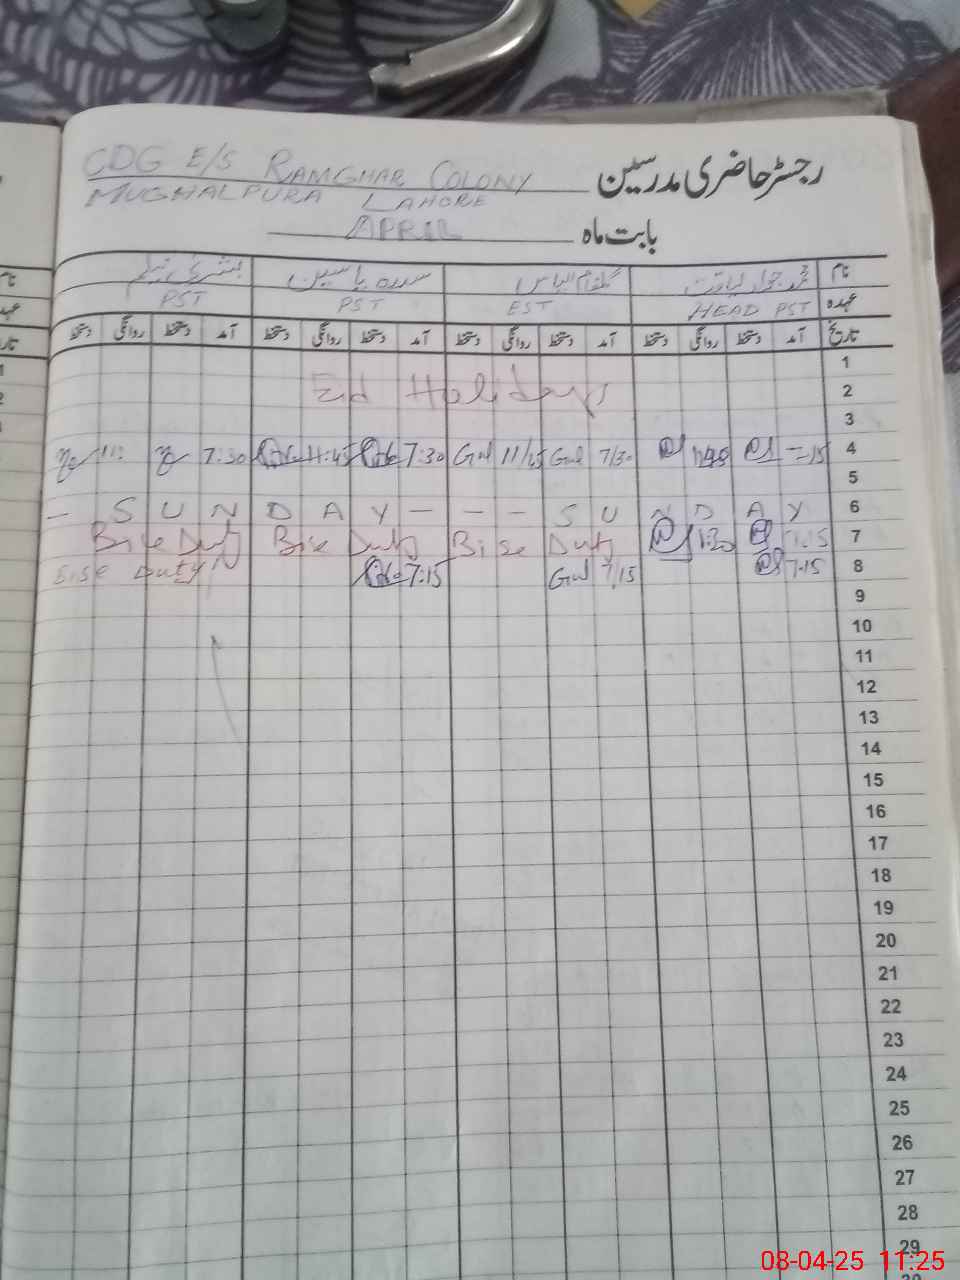 رجسٹر حاضری مدرسین CDG E/S RAMGHAR COLONY
MUGHALPURA LAHORE
بابت ماہ APRIL
نام
عہدہ HEAD PST EST PST PST
تاریخ آمد دستخط روانگی دستخط آمد دستخط روانگی دستخط آمد دستخط روانگی دستخط آمد دستخط روانگی دستخط
1
Eid Holidays 2
3
7:30 11:45 7:30 Gul 11/45 Gul 7/30 7:15 4
5
– S U N D A Y – – – S U N D A Y 6
Bise Duty Bise Duty Bise Duty 1:30 7:15 7
Bise Duty 7:15 Gul 7/15 7:15 8
9
10
11
12
13
14
15
16
17
18
19
20
21
22
23
24
25
26
27
28
29
08-04-25 11:25